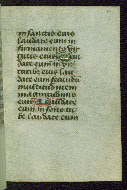 in sanctis eius
laudate eum in
firmamento vir
tutis eius lau
date eum in vir
tutibus eius lau
date eum secundu
multitudinem
magnitudinis
eius Laudate
eum in sono tu
be laudate eum